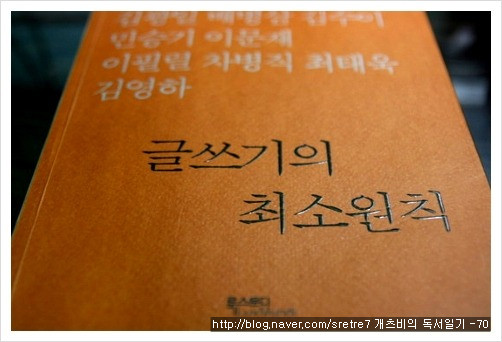 민승기 이문재
이필렬 차병직 최태욱
김영하
글쓰기의
최소원칙
룩스문디
http://blog.naver.com/sretre7 개츠비의 독서일기 -70